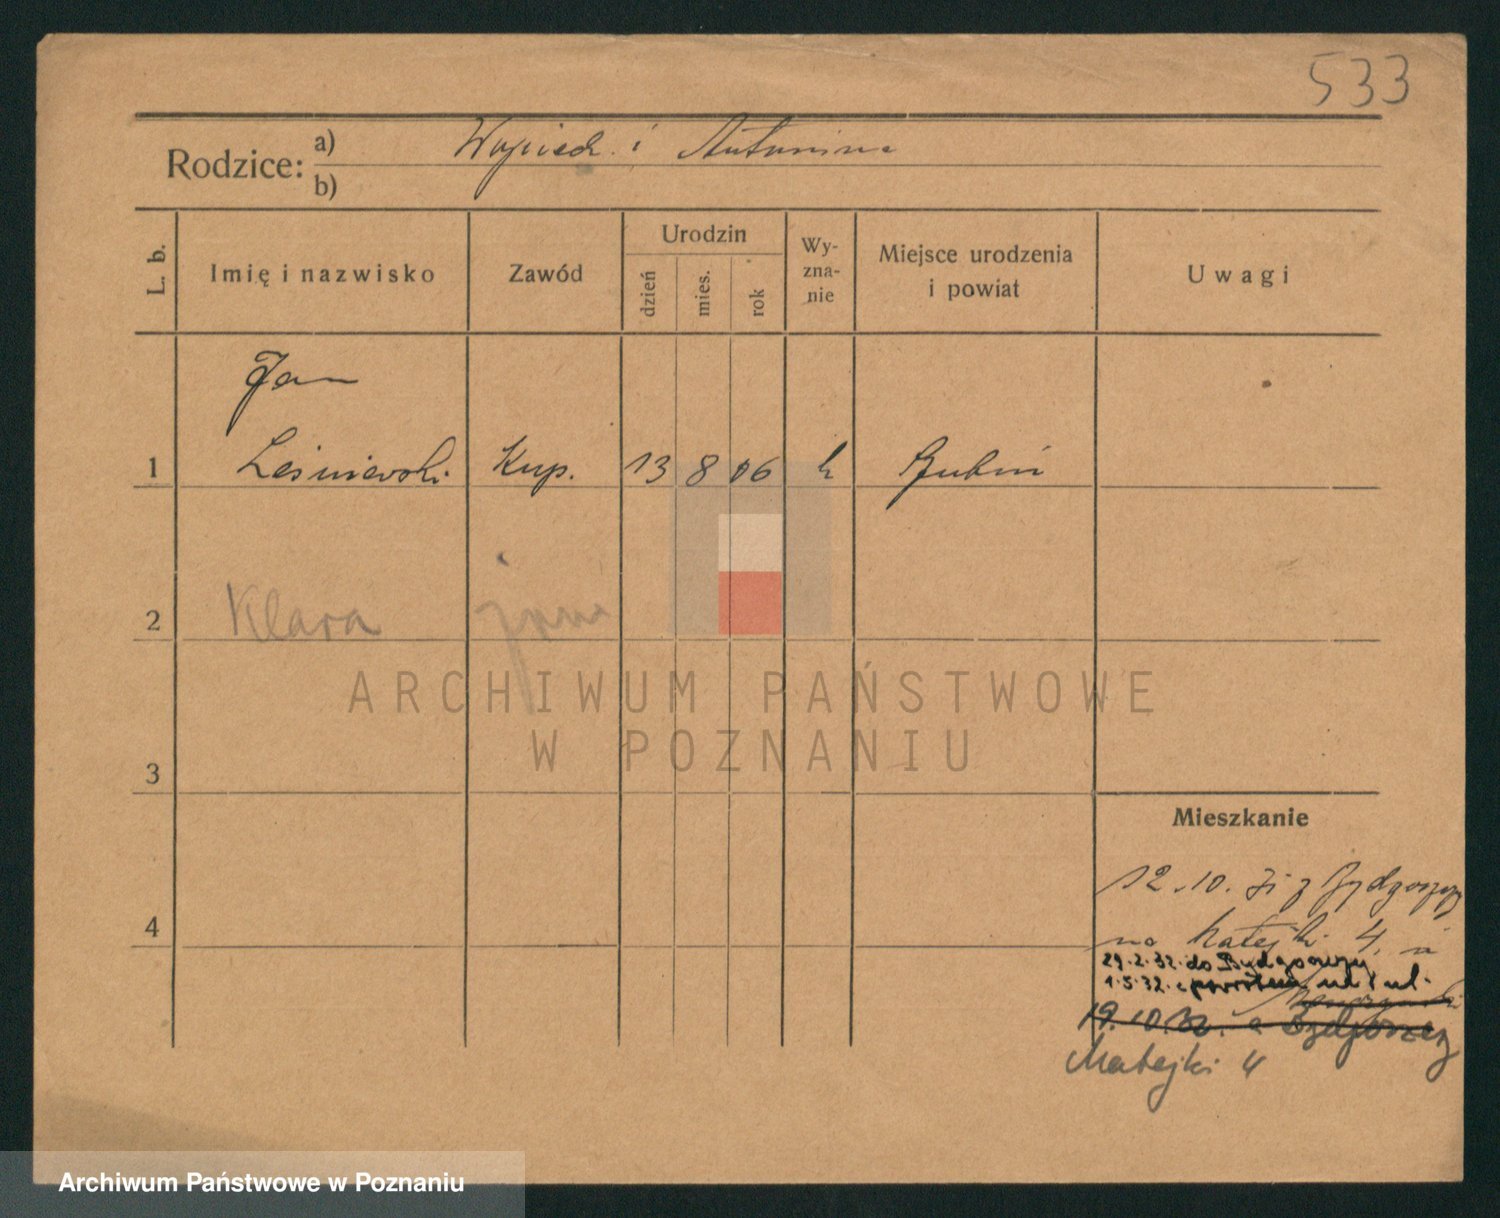 533
Rodzice: a) Wojciech i Antonina
b)
L. b. Imię i nazwisko Zawód Urodzin dzień mies. rok Wy-zna-nie Miejsce urodzenia i powiat Uwagi
Jan
1 Leśniewski Kup. 13 8 06 k
2 Klara
3
4
ARCHIWUM PAŃSTWOWE
W POZNANIU
Mieszkanie
12.10. 31 z Bydgoszczy
na Matejki 4.
29.2.32. do Bydgoszczy
1.5.32. z powrotem
19.10.32. z Bydgoszczy
Matejki 4
Archiwum Państwowe w Poznaniu